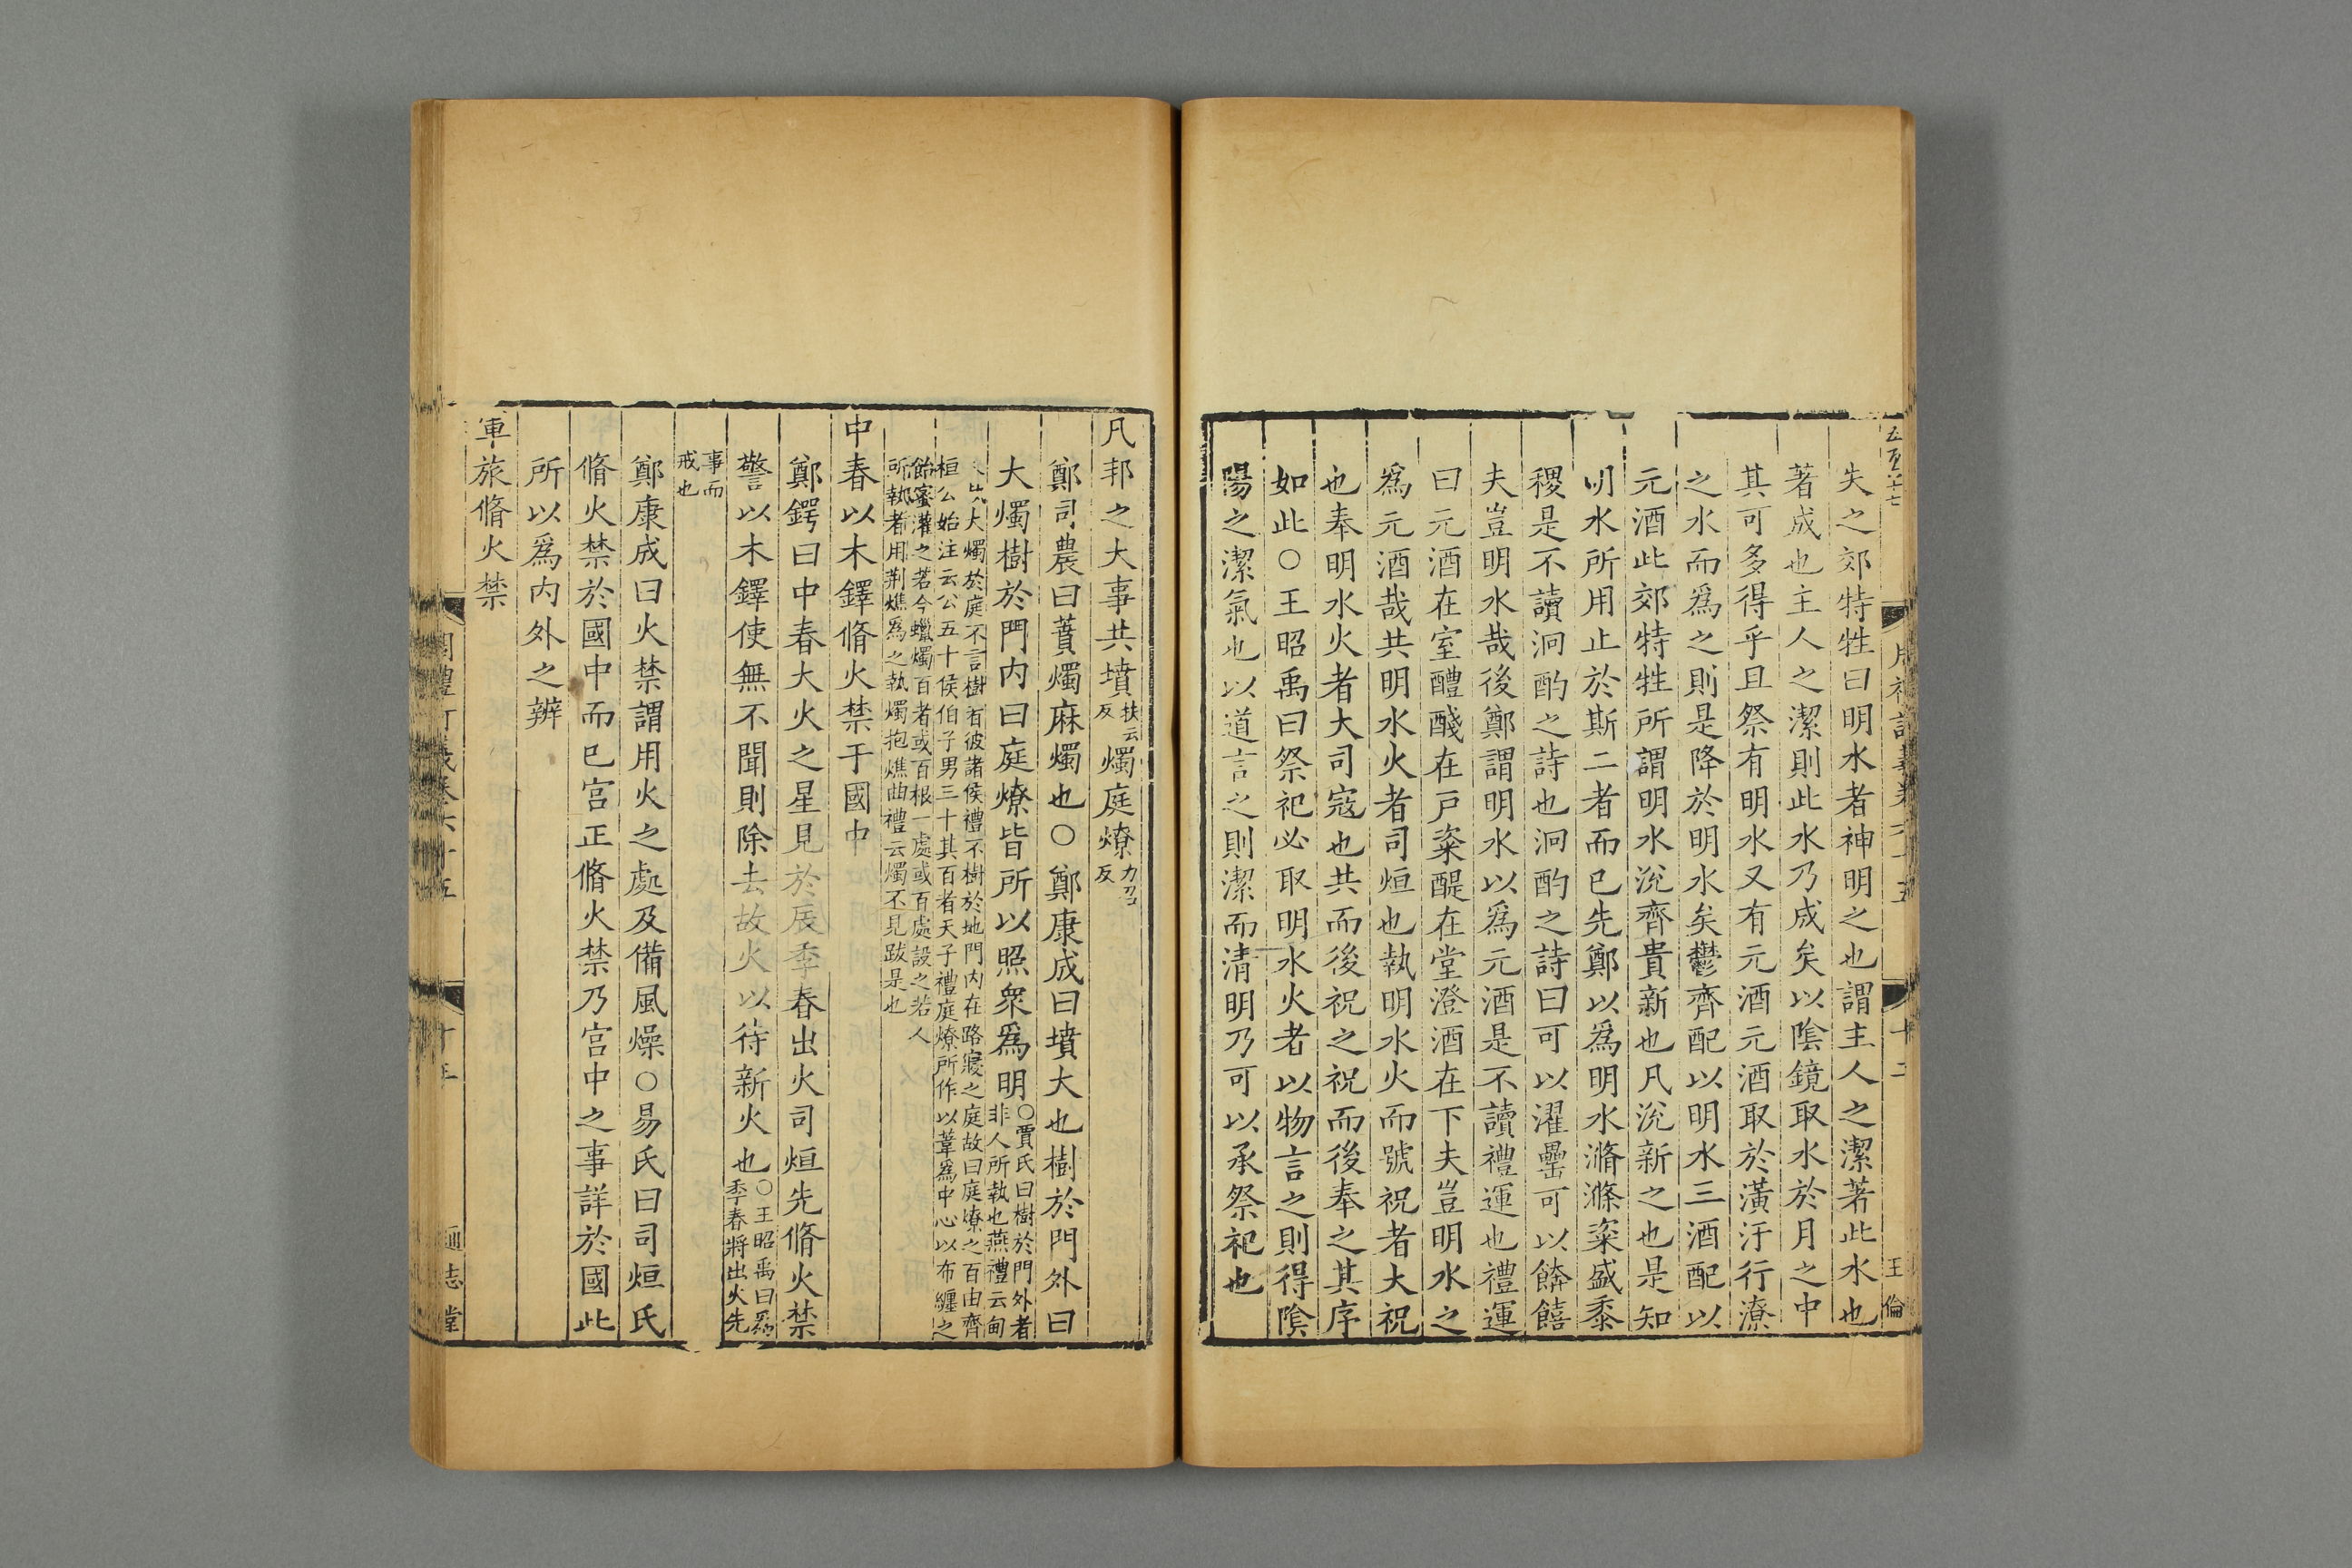 失之郊特牲曰明水者神明之也謂主人之潔著此水也
著成也主人之潔則此水乃成矣以陰鏡取水於月之中
其可多得乎且祭有明水又有元酒元酒取於潢汙行潦
之水而爲之則是降於明水矣鬱齊配以明水三酒配以
元酒此郊特牲所謂明水涗齊貴新也凡涗新之也是知
明水所用止於斯二者而已先鄭以爲明水滫瀡粢盛黍
稷是不讀泂酌之詩也泂酌之詩曰可以濯罍可以餴饎
夫豈明水哉後鄭謂明水以爲元酒是不讀禮運也禮運
曰元酒在室醴醆在戸粢醍在堂澄酒在下夫豈明水之
爲元酒哉共明水火者司烜也執明水火而號祝者大祝
也奉明水火者大司寇也共而後祝之祝而後奉之其序
如此○王昭禹曰祭祀必取明水火者以物言之則得陰
陽之潔氣也以道言之則潔而清明乃可以承祭祀也
王倫
凡邦之大事共墳扶云反燭庭燎力召反
鄭司農曰蕡燭麻燭也○鄭康成曰墳大也樹於門外曰
大燭樹於門内曰庭燎皆所以照衆爲明○賈氏曰樹於門外者
非人所執也燕禮云甸
人大燭於庭不言樹者彼諸侯禮不樹於地門内在路寢之庭故曰庭燎之百由齊
桓公始注云公五十侯伯子男三十其百者天子禮庭燎所作以葦爲中心以布纏之
飴蜜灌之若今蠟燭百者或百根一處或百處設之若人
所執者用荆燋爲之執燭抱燋曲禮云燭不見跋是也
中春以木鐸脩火禁于國中
鄭鍔曰中春大火之星見於辰季春出火司烜先脩火禁
警以木鐸使無不聞則除去故火以待新火也○王昭禹曰爲
季春將出火先
事而
戒也
鄭康成曰火禁謂用火之處及備風燥○易氏曰司烜氏
脩火禁於國中而已宫正脩火禁乃宫中之事詳於國此
所以爲内外之辨
軍旅脩火禁
通志堂